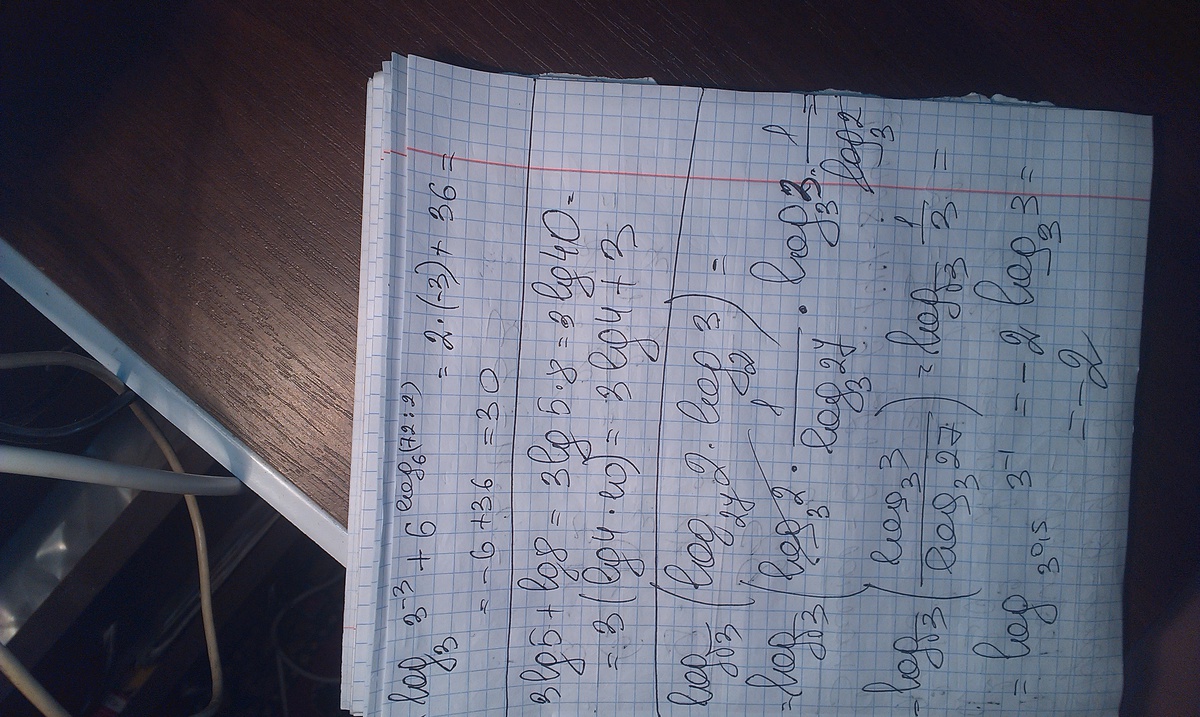 log₃ 3⁻³ + 6^(log₆(72:2)) = 2·(-3) + 36 =
= -6 + 36 = 30
3lg5 + lg8 = 3lg 5·8 = 3lg40 =
= 3(lg4·10) = 3lg4 + 3
log_√3 (log₂₇2 · log₂3) =
= log_√3 (log₃2/log₃27 · log₃3 · 1/log₃2) =
= log_√3 (log₃3/log₃27) = log_√3 1/3 =
= log 3^0,5 3⁻¹ = -2 log₃3 =
= -2